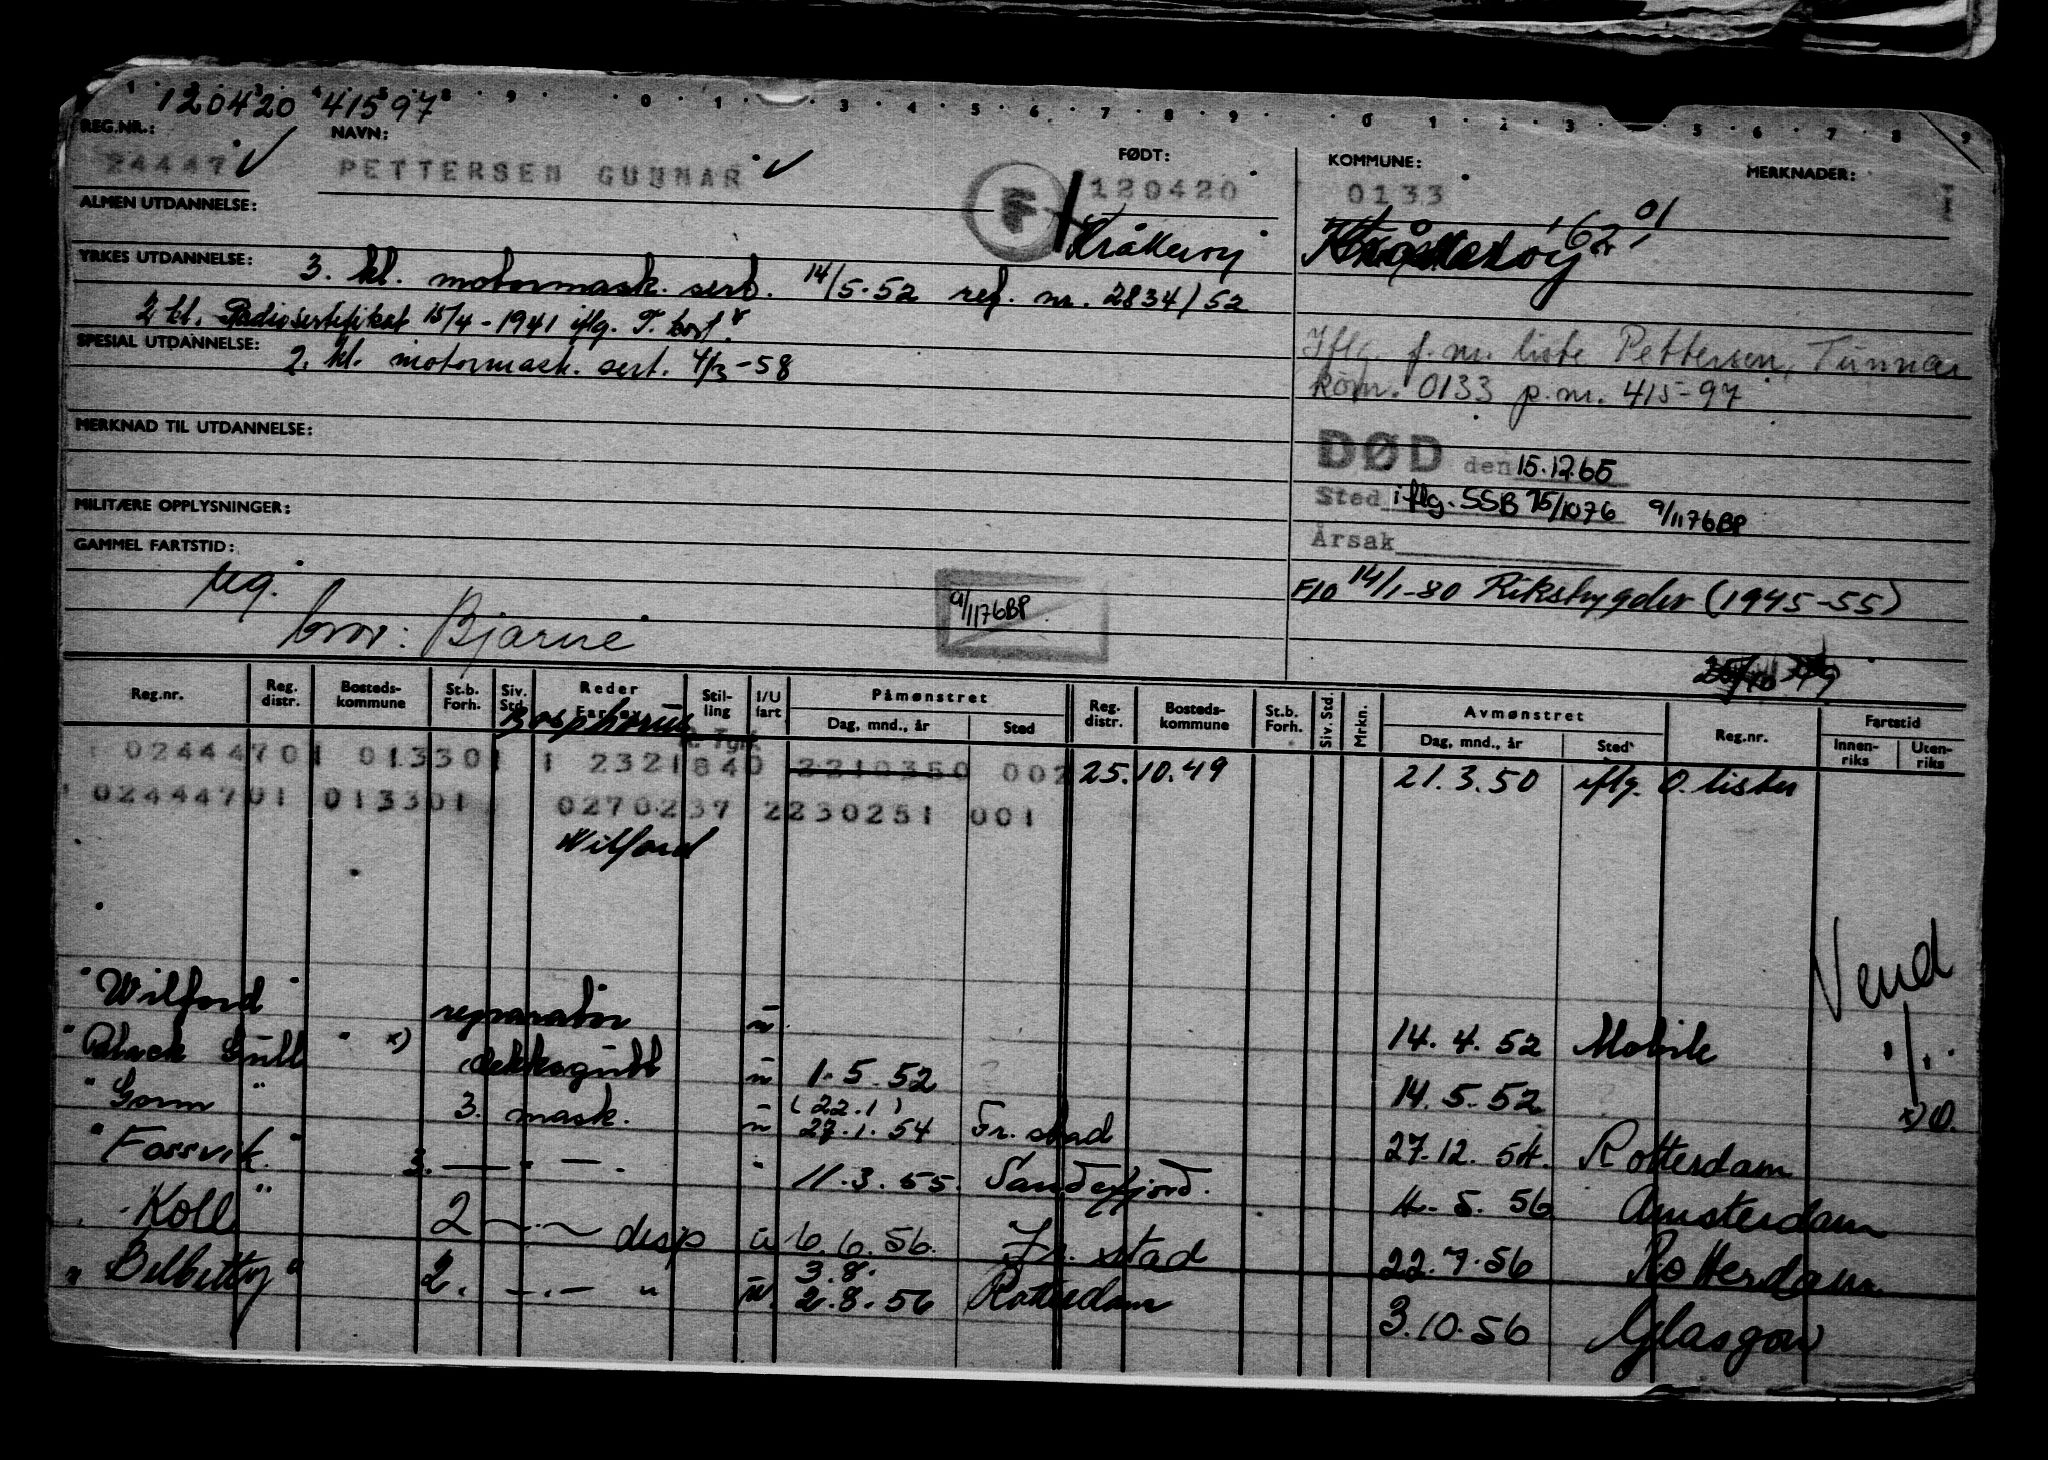 120420 41597
REG.NR.: NAVN: FØDT: KOMMUNE: MERKNADER:
24447 PETTERSEN GUNNAR F 120420 0133
ALMEN UTDANNELSE: Kråkerøy
YRKES UTDANNELSE: 3. kl. motormask. sert. 14/5-52 ref. nr. 2834/52
2 kl. Radiosertifikat 15/4-1941 iflg. T. kort
SPESIAL UTDANNELSE: 2. kl. motormask. sert. 4/3-58
Iflg. f.nr. liste Pettersen, Tunnar
kom. 0133 p.nr. 415-97
MERKNAD TIL UTDANNELSE:
DØD den 15.12.65
MILITÆRE OPPLYSNINGER: Sted iflg. SSB 75/1076 9/1176BP
GAMMEL FARTSTID: Årsak
reg. 9/1176BP F10 14/1-80 Riksbygder (1945-55)
bror: Bjarne
Reg.nr. Reg. distr. Bosteds-kommune St.b. Forh. Siv. Std. Reder Fartøy Stil-ling I/U fart Påmønstret Dag, mnd., år Sted Reg. distr. Bosteds-kommune St.b. Forh. Siv. Std. Mrkn. Avmønstret Dag, mnd., år Sted Reg.nr. Fartstid Innen-riks Uten-riks
Bosphorus
02444701 013301 1 2321840 2210350 002 25.10.49 21.3.50 iflg. O. lister
02444701 013301 0270237 2230251 001
Wilford
Vend
"Wilford" reparatør u 14.4.52 Mobile
"Black Gull" x) dekksgutt u 1.5.52 ? 14.5.52 ? x) O.
"Gorm" 3. mask. u (22.1) 27.1.54 Fr.stad 27.12.54. Rotterdam
"Forsvik" 3. — " — . " 11.3.55. Sandefjord. 4.5.56 Amsterdam
"Koll" 2 — . — disp u 6.6.56. Fr.stad 22.7.56 Rotterdam
"Belbetty" 2. — . — " u. 3.8. 2.8.56 Rotterdam 3.10.56 Glasgow